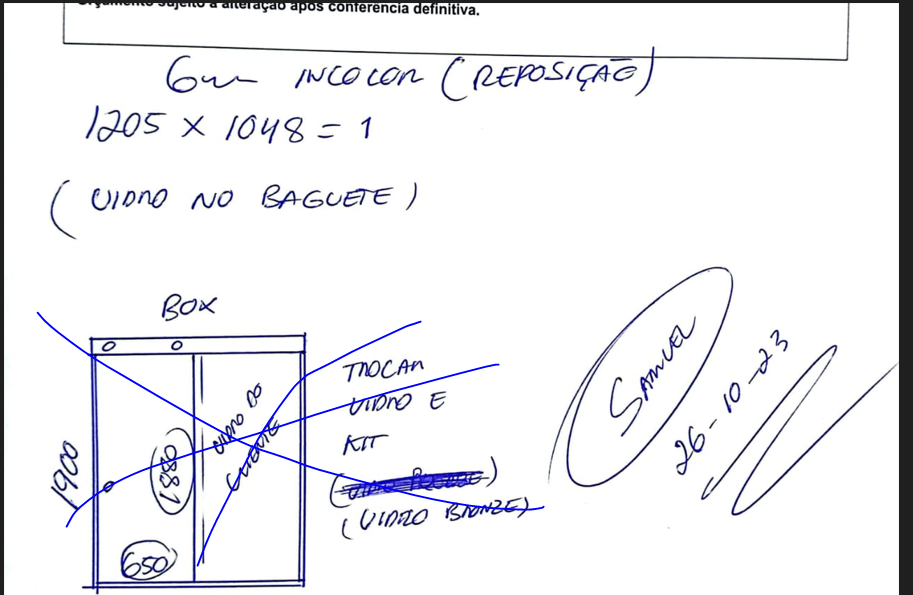 Orçamento sujeito a alteração após conferência definitiva.
6mm INCOLOR (REPOSIÇÃO)
1205 X 1048 = 1
(VIDRO NO BAGUETE)
BOX
TROCAR
VIDRO E
KIT
(VIDRO BRONZE)
VIDRO DO
CLIENTE
1900
1880
650
SAMUEL
26-10-23